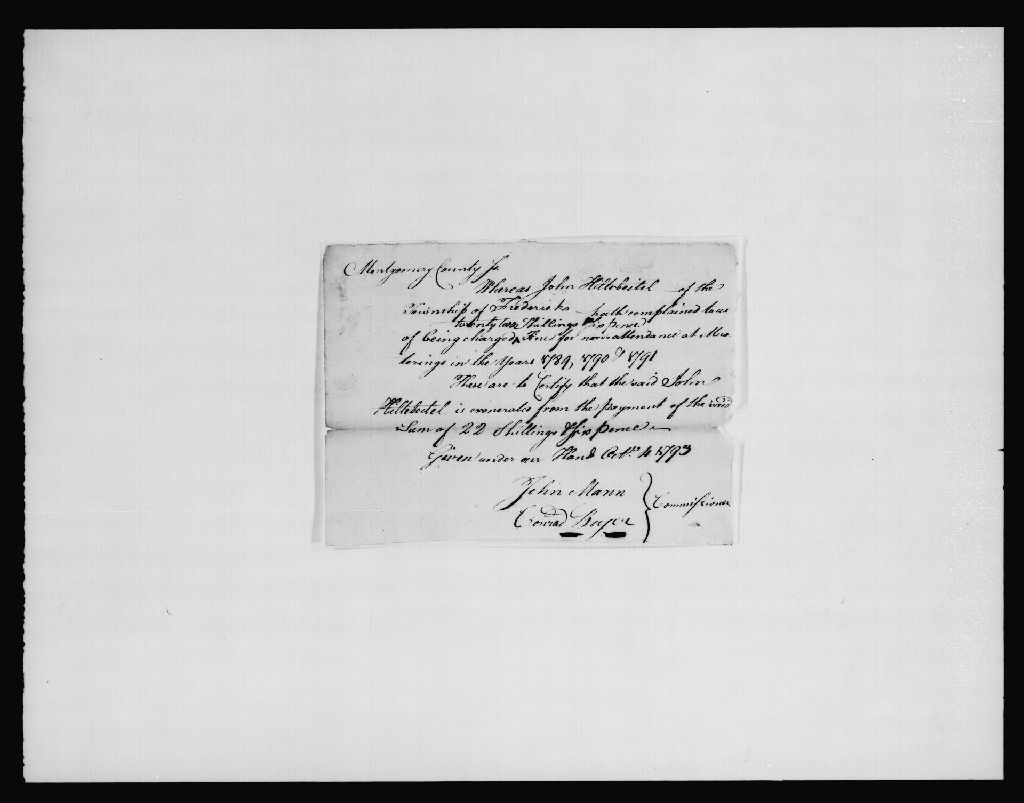 Montgomery County ss.
Whereas John Hiltebeitel of the
Township of Fredericks hath complained to us
twenty two Shillings Sixpence
of being charged Fine for nonattendance at Mus
terings in the Years 1789, 1790 & 1791
These are to Certify that the said John
Hiltebeitel is exonerated from the payment of the said
Sum of 22 Shillings & Sixpence
Given under our Hand Octr. 4 1793
John Mann
Conrad Boyer
Commissioner